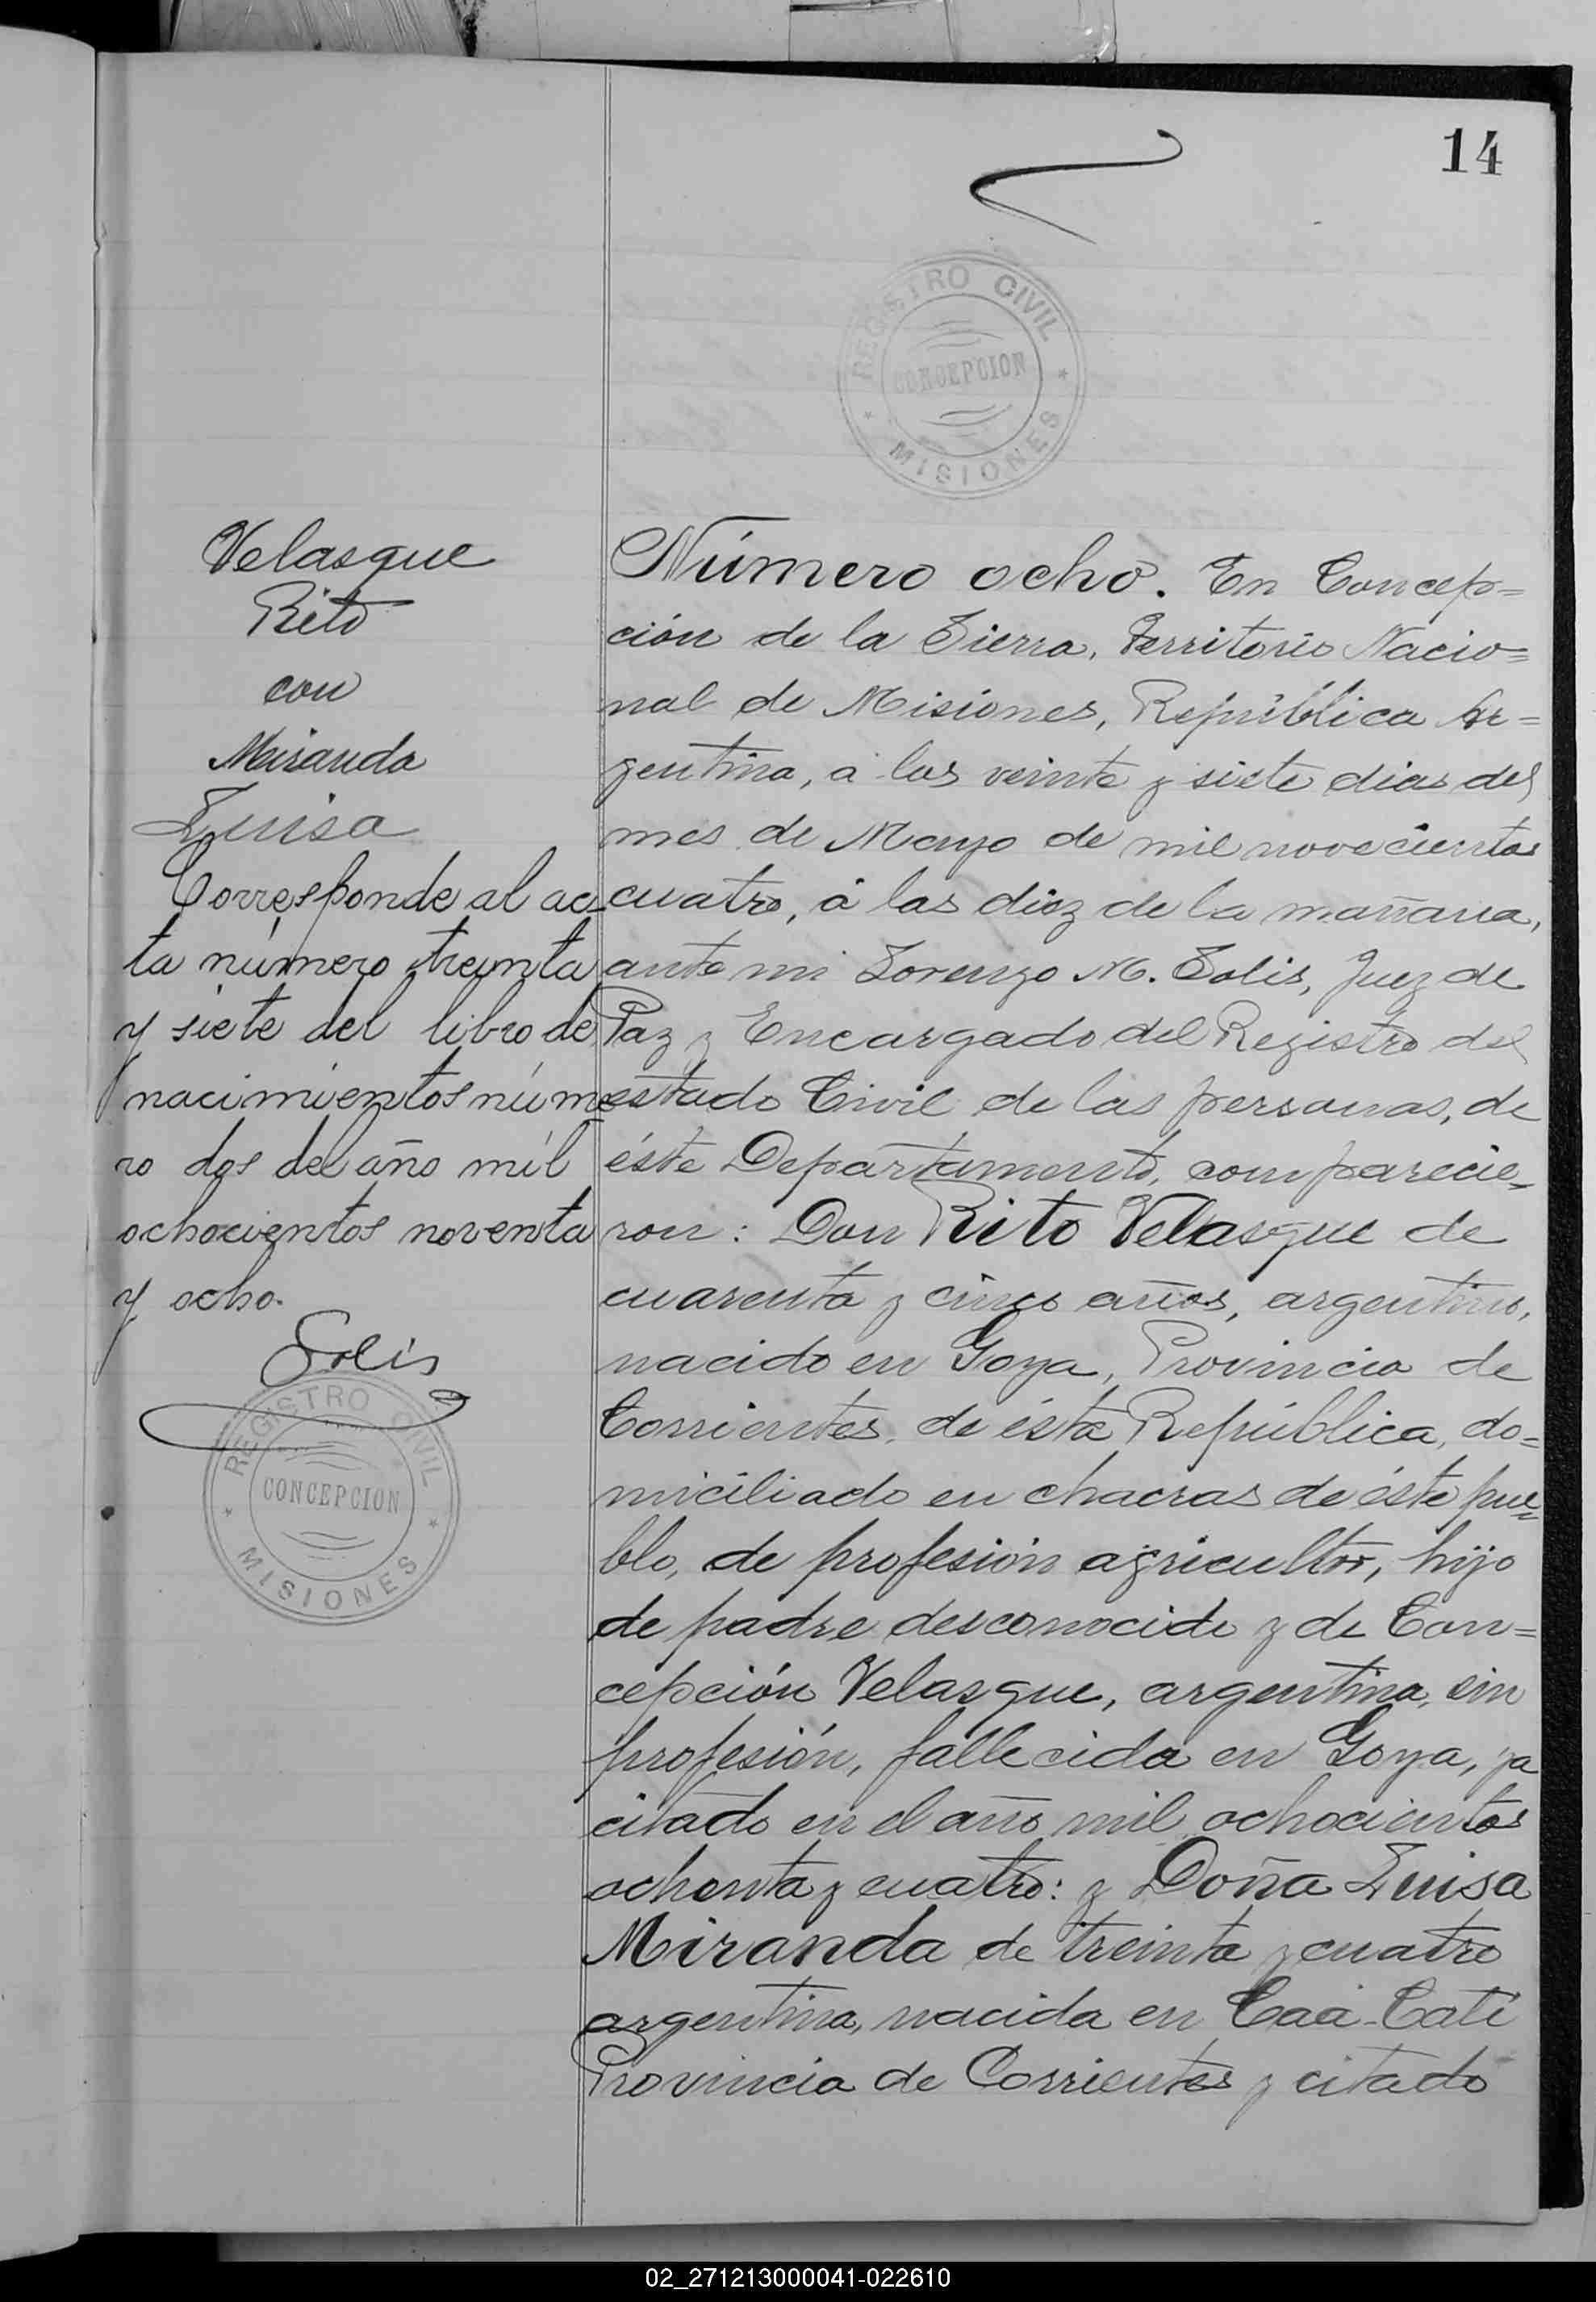 14
REGISTRO CIVIL
CONCEPCION
MISIONES
Velasque
Rito
con
Miranda
Luisa
Corresponde al ac-
ta número treinta
y siete del libro de
nacimientos núme
ro dos del año mil
ochocientos noventa
y ocho.
Solis
REGISTRO CIVIL
CONCEPCION
MISIONES
Número ocho. En Concep=
ción de la Sierra, Territorio Nacio=
nal de Misiones, República Ar=
gentina, á los veinte y siete dias del
mes de Mayo de mil novecientos
cuatro, á las diez de la mañana,
ante mi Lorenzo M. Solis, Juez de
Paz y Encargado del Registro del
estado Civil de las personas, de
éste Departamento, comparecie-
ron: Don Rito Velasque de
cuarenta y cinco años, argentino,
nacido en Goya, Provincia de
Corrientes, de ésta República, do=
miciliado en chacras de éste pue=
blo, de profesión agricultor, hijo
de padre desconocido y de Con=
cepción Velasque, argentina, sin
profesión, fallecida en Goya, ya
citado en el año mil ochocientos
ochenta y cuatro: y Doña Luisa
Miranda de treinta y cuatro
argentina, nacida en Caá-Catí
Provincia de Corrientes y citado
02_271213000041-022610